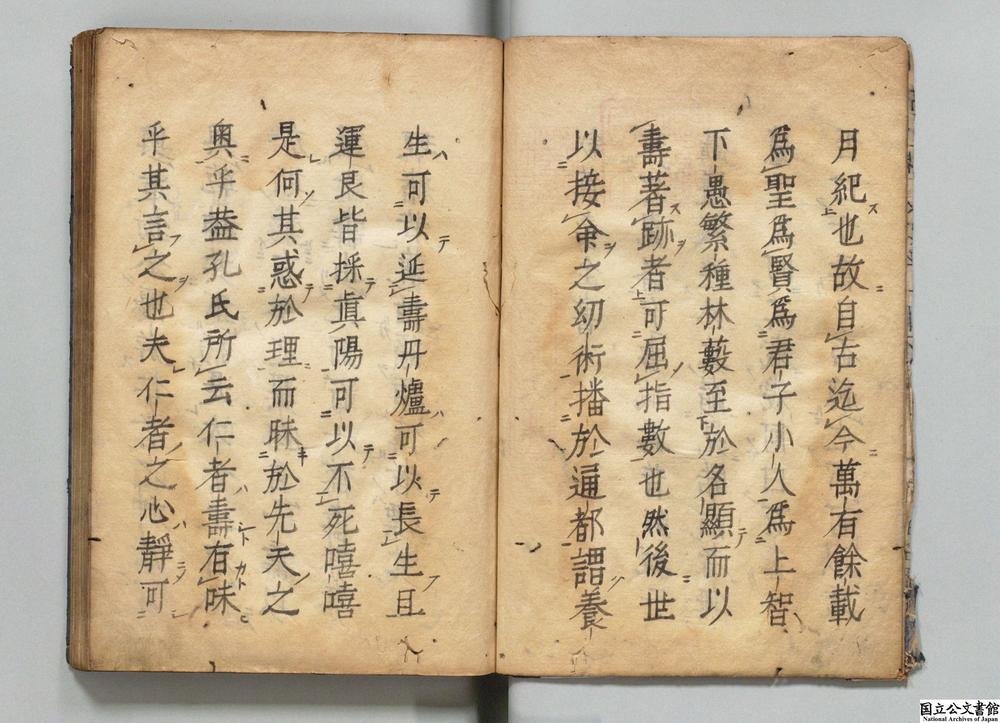 月紀也故自古迄今萬有餘載
爲聖爲賢爲君子小人爲上智
下愚繁種林藪至於各顯而以
壽著跡者可屈指數也然後世
以接命之幻術播於通都謂養
生可以延壽丹爐可以長生且
運艮皆採眞陽可以不死嘻嘻
是何其惑於理而昧於先天之
奥乎葢孔氏所云仁者壽有味
乎其言之也夫仁者之心靜可
国立公文書館
National Archives of Japan